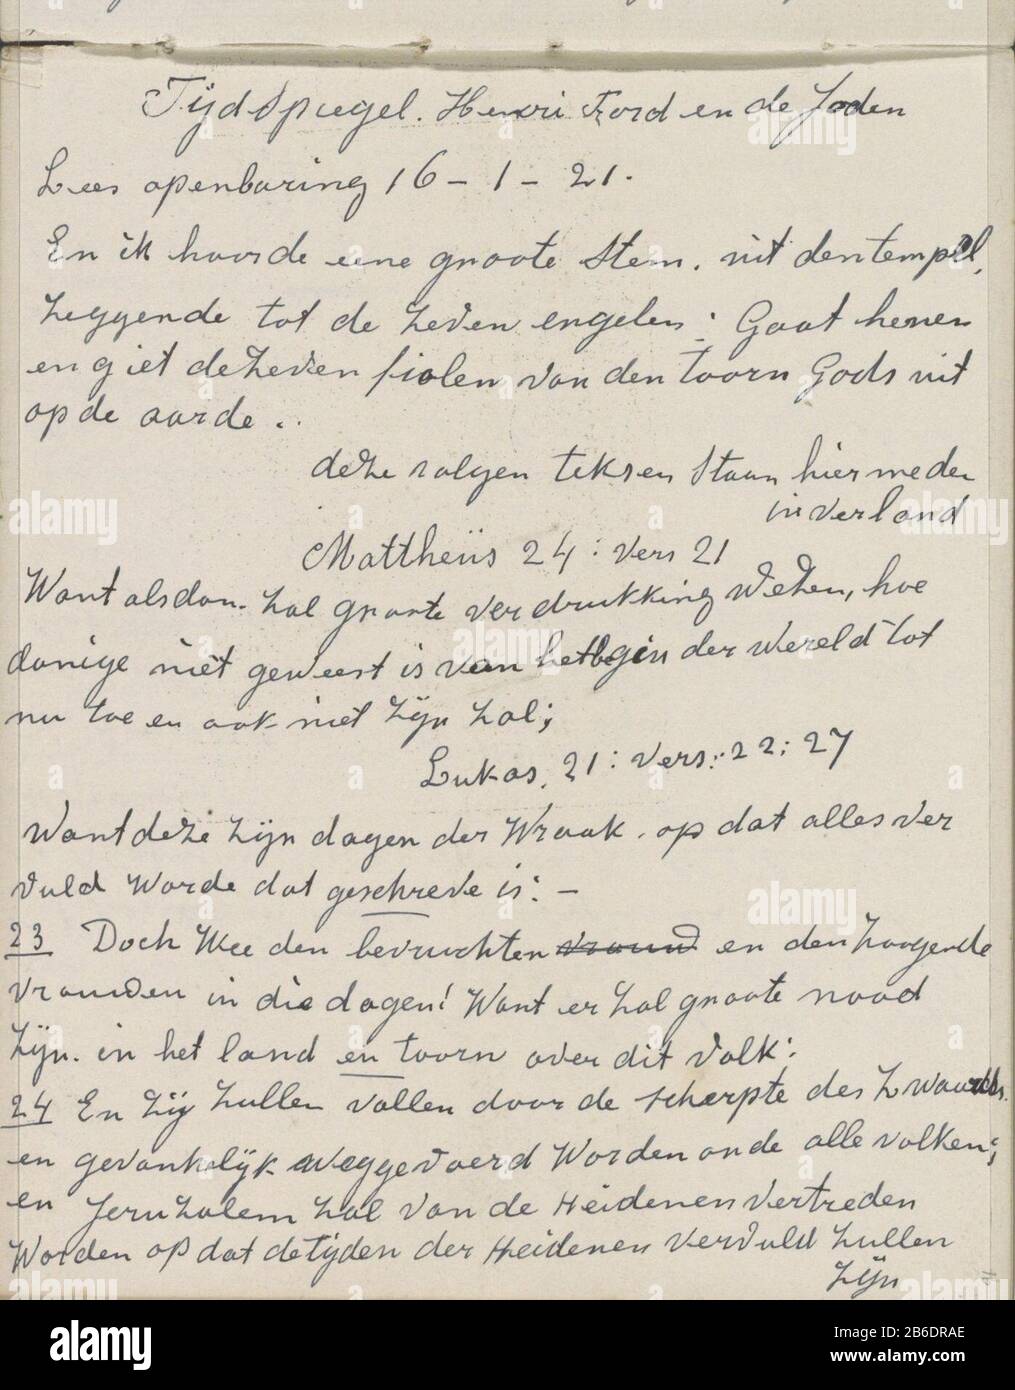 Tijdspiegel. Henri Ford en de Joden
Lees openbaring 16 - 1 - 21.
En ik hoorde eene groote Stem. uit den tempel,
zeggende tot de zeven engelen: Gaat henen
en giet de zeven fiolen van den toorn Gods uit
op de aarde.
deze volgen teksen Staan hier meden
in verband
Mattheüs 24: vers 21
Want alsdan. zal groote verdrukking wezen, hoe
danige niet geweest is van het begin der wereld tot
nu toe en ook niet zijn zal;
Lukas. 21: vers: 22: 27
Want deze zijn dagen der Wraak. op dat alles ver
vuld worde dat geschreve is: -
23 Doch Wee den bevruchten en den zoogende
vrouwen in die dagen! Want er zal groote nood
zijn. in het land en toorn over dit volk:
24 En zij zullen vallen door de scherpte des zwaards.
en gevankelijk weggevoerd worden onde alle volken;
en Jeruzalem zal van de Heidenen vertreden
Worden op dat de tijden der Heidenen vervuld zullen
zijn
alamy
alamy
alamy
alamy
alamy
alamy
alamy
alamy
Image ID: 2B6DRAE
www.alamy.com